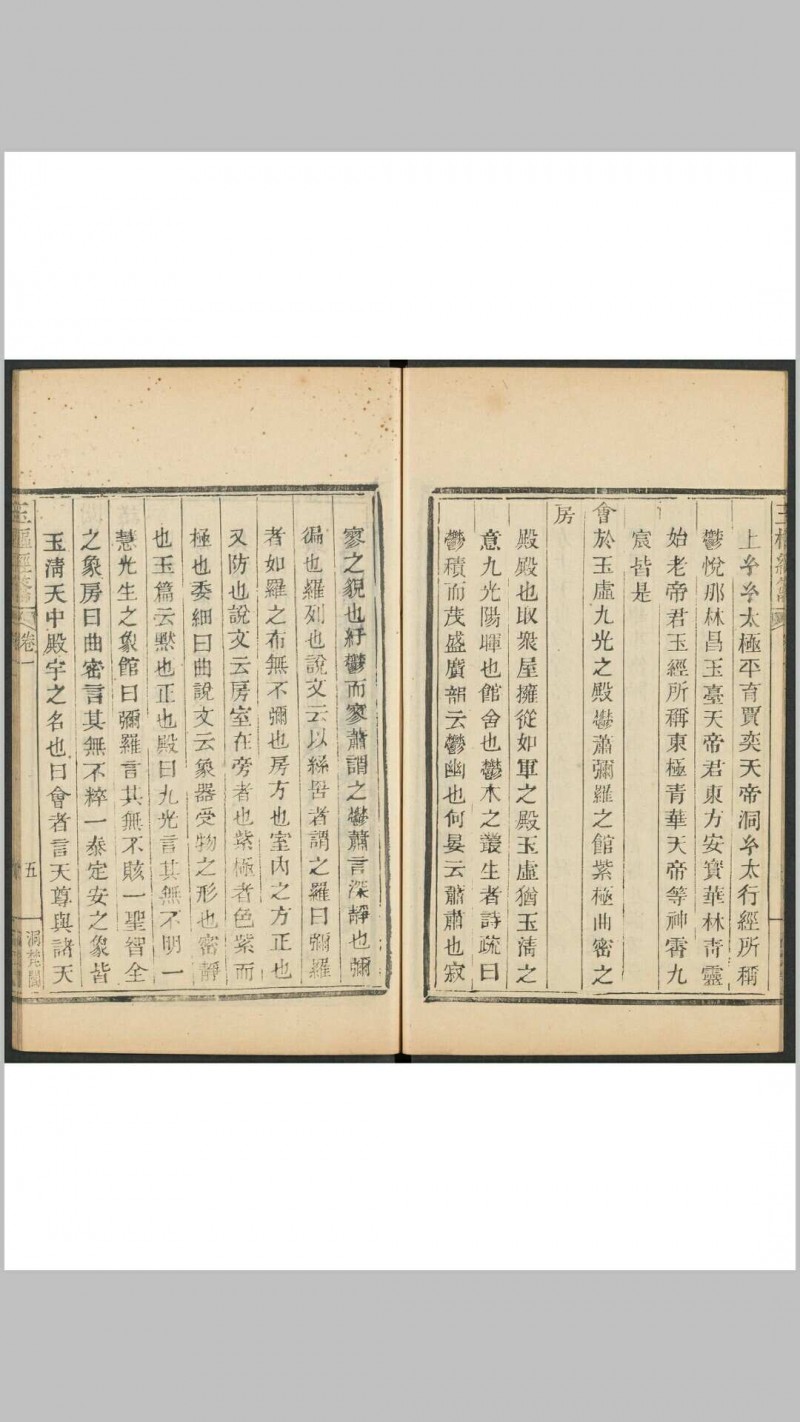 上𤣥𤣥太極平育賈奕天帝洞𤣥太行經所稱
鬱悅那林昌玉臺天帝君東方安寶華林青靈
始老帝君玉經所稱東極青華天帝等神霄九
宸皆是
會於玉虛九光之殿鬱蕭彌羅之館紫極曲密之
房
殿殿也取衆屋擁從如軍之殿玉虛猶玉淸之
意九光陽暉也館舍也鬱木之叢生者詩疏曰
鬱積而茂盛廣韻云鬱幽也何晏云蕭蕭也寂
寥之貌也紆鬱而寥蕭謂之鬱蕭言深靜也彌
徧也羅列也說文云以絲罟者謂之羅曰彌羅
者如羅之布無不彌也房方也室內之方正也
又防也說文云房室在旁者也紫極者色紫而
極也委細曰曲說文云象器受物之形也密靜
也玉篇云黙也正也殿曰九光言其無不明一
慧光生之象館曰彌羅言其無不賅一聖智全
之象房曰曲密言其無不粹一泰定安之象皆
玉淸天中殿宇之名也曰會者言天尊與諸天
卷一
五